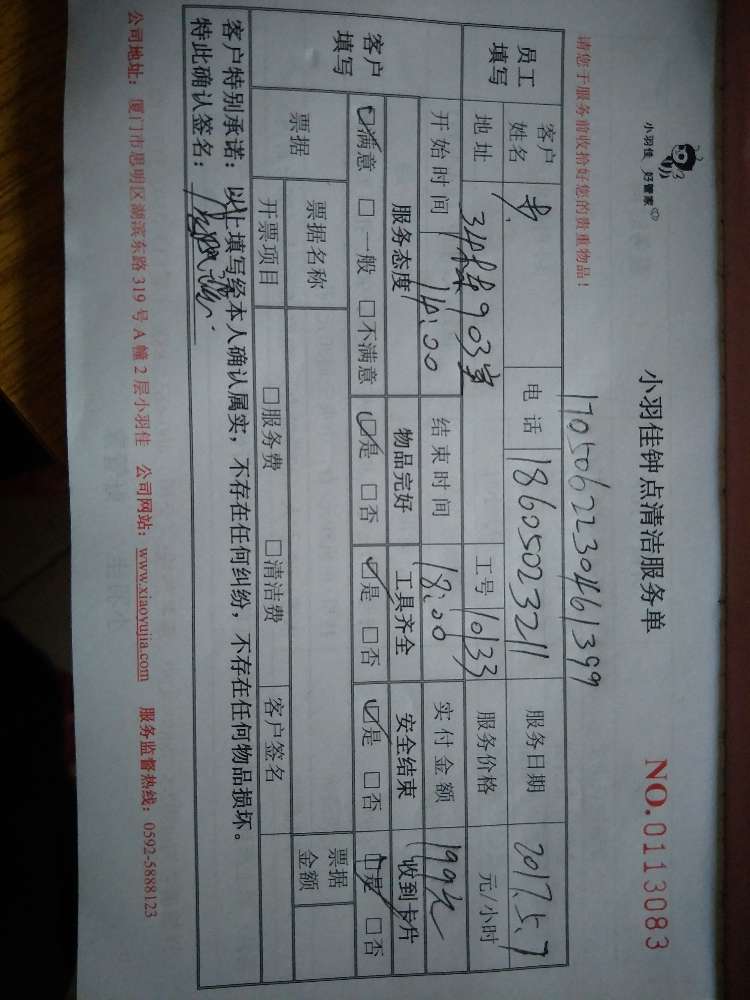 小羽佳 好管家
小羽佳钟点清洁服务单
NO.0113083
请您于服务前收拾好您的贵重物品!
1705062230461399
员工填写 客户姓名 电话 18605023211 服务日期 2017.5.7
地址 34栋903室 工号 10133 服务价格 元/小时
开始时间 14:00 结束时间 18:00 实付金额 199元
客户填写 服务态度 物品完好 工具齐全 安全结束 收到卡片
☑满意 □一般 □不满意 ☑是 □否 ☑是 □否 ☑是 □否 ☑是 □否
票据 票据名称 票据金额
开票项目 □服务费 □清洁费 客户签名
客户特别承诺:以上填写经本人确认属实,不存在任何纠纷,不存在任何物品损坏。
特此确认签名:
公司地址:厦门市思明区湖滨东路319号A幢2层小羽佳 公司网站:www.xiaoyujia.com 服务监督热线:0592-5888123